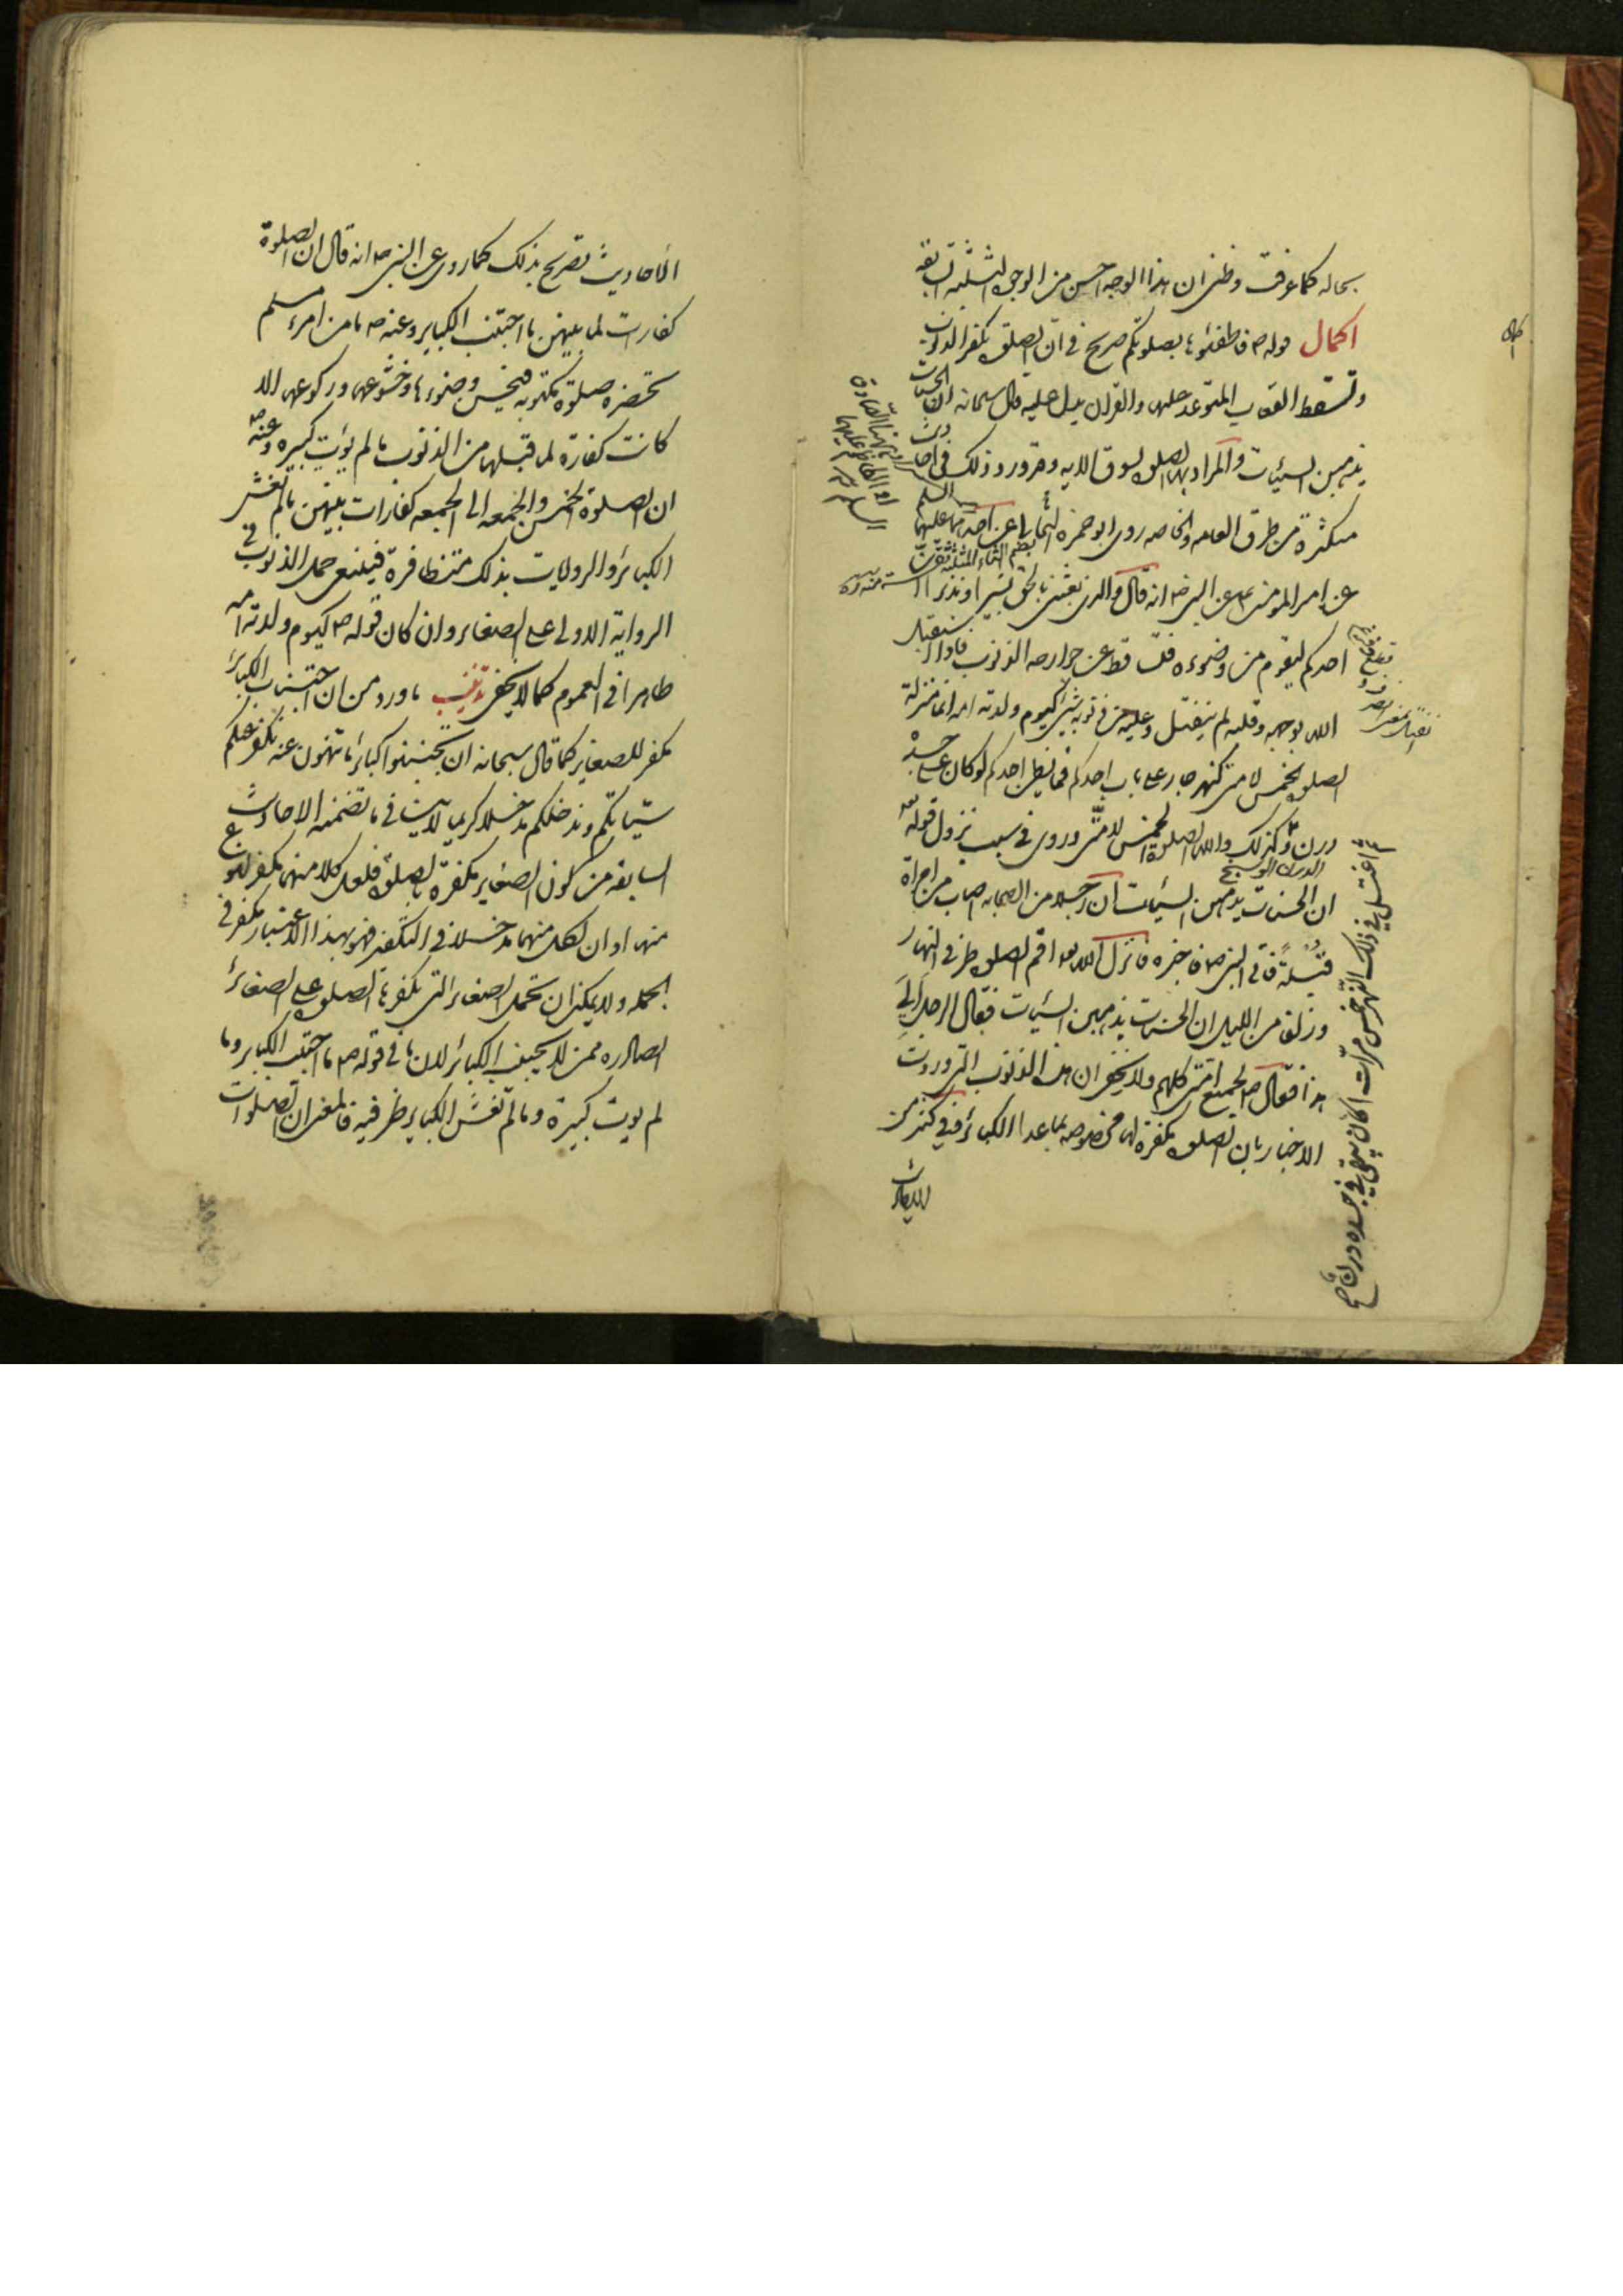 بحاله كما عرفت وظنى ان هذا الوجه احسن من الوجوه الثلثة السابقة
اكمال قوله ص فاطفئوها بصلوتكم صريح فى ان الصلوة تكفر الذنوب
وتسقط العقاب المتوعد عليها والقران يدل عليه قال سبحانه ان الحسنات
يذهبن السيئات والمراد بها الصلوة لسوق الايه وقد ورد ذلك فى احاديث
متكثرة من طرق العامه والخاصه روى ابو حمزة الثمالى عن احدهما عليهما السلم
عن امير المومنين ع عن النبى ص انه قال والذى بعثنى بالحق بشيرا ونذيرا ان
احدكم ليقوم من وضوءه فتساقط عن جوارحه الذنوب فاذا استقبل
الله بوجهه وقلبه لم ينفتل وعليه من ذنوبه شئ كيوم ولدته امه انما منزلة
الصلوة الخمس لامتى كنهر جار على باب احدكم فما يظن احدكم لو كان على جسده
درن ثم كذلك والله الصلوة الخمس لامتى وروى فى سبب نزول قوله تع
الدرن الوسخ
ان الحسنات يذهبن السيئات ان رجلا من الصحابه اصاب من امراة
قبلة فاتى النبى ص فاخبره فانزل الله تعه اقم الصلوة طرفى النهار
وزلفا من الليل ان الحسنات يذهبن السيئات فقال الرجل الى
هذا فقال ص لجميع امتى كلهم ولا يخفى ان هذه الذنوب التى وردت
الاخبار بان الصلوة مكفرة لها مخصوصه بما عدا الكبائر وفى كثير من
الاحاديث
اغتسل فى ذلك النهر خمس مرات اكان يبقى فى جسده درن صح
الاحاديث تصريح بذلك كما روى عن النبى ص انه قال ان الصلوة
كفارت لما بينهن ما اجتنب الكباير وعنه ص ما من امرء مسلم
تحضره صلوة مكتوبه فيحسن وضوءها وخشوعها وركوعها الا
كانت كفارة لما قبلها من الذنوب ما لم يؤت كبيره وعنه ص
ان الصلوة الخمس والجمعه الى الجمعه كفارات بينهن ما لم تغش
الكبائر والروايات بذلك متظافرة فينبغى حمل الذنوب فى
الرواية الاولى على الصغاير وان كان قوله ص كيوم ولدته امه
ظاهرا فى العموم كما لا يخفى تذنيب ما ورد من ان اجتناب الكبائر
مكفر للصغاير كما قال سبحانه ان تجتنبوا كبائر ما تنهون عنه نكفر عنكم
سيئاتكم وندخلكم مدخلا كريما لا ينافى ما تضمنه الاحاديث
السابقه من كون الصغاير مكفرة بالصلوة فلعل كلا منهما مكفر لنوع
منها او ان لكل منهما مدخلا فى التكفير فهو بهذا الاعتبار مكفر فى
الجمله ولا يمكن ان تحمل الصغائر التى تكفرها الصلوة على الصغائر
الصادره ممن لا يجتنب الكبائر لان ما فى قوله ص ما اجتنب الكباير وما
لم يوت كبيرة وما لم تغش الكباير ظرفية فالمعنى ان الصلوات